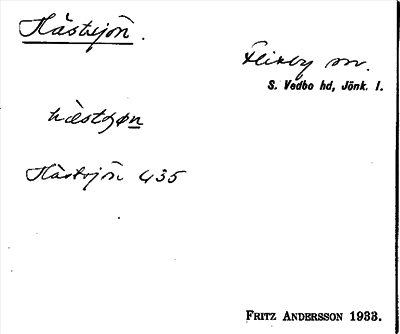 Hästsjön.
Flisby sn.
S. Vedbo hd, Jönk. l.
Hästsjön 435
FRITZ ANDERSSON 1933.